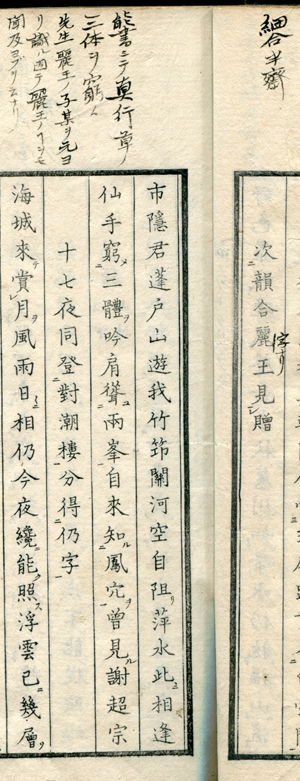 細合半齋
次韻合麗王見贈
能書ニテ真行草ノ
三体ヲ窮ム
先生麗王ノ子某ヲ元ヨ
リ識ル因テ麗王ノ
市隱君蓬戶山遊我竹筇關河空自阻萍水此相逢
仙手窮三體吟肩聳兩峯自來知鳳穴曾見謝超宗
十七夜同登對潮樓分得仍字
海城來賞月風雨日相仍今夜纔能照浮雲已幾層